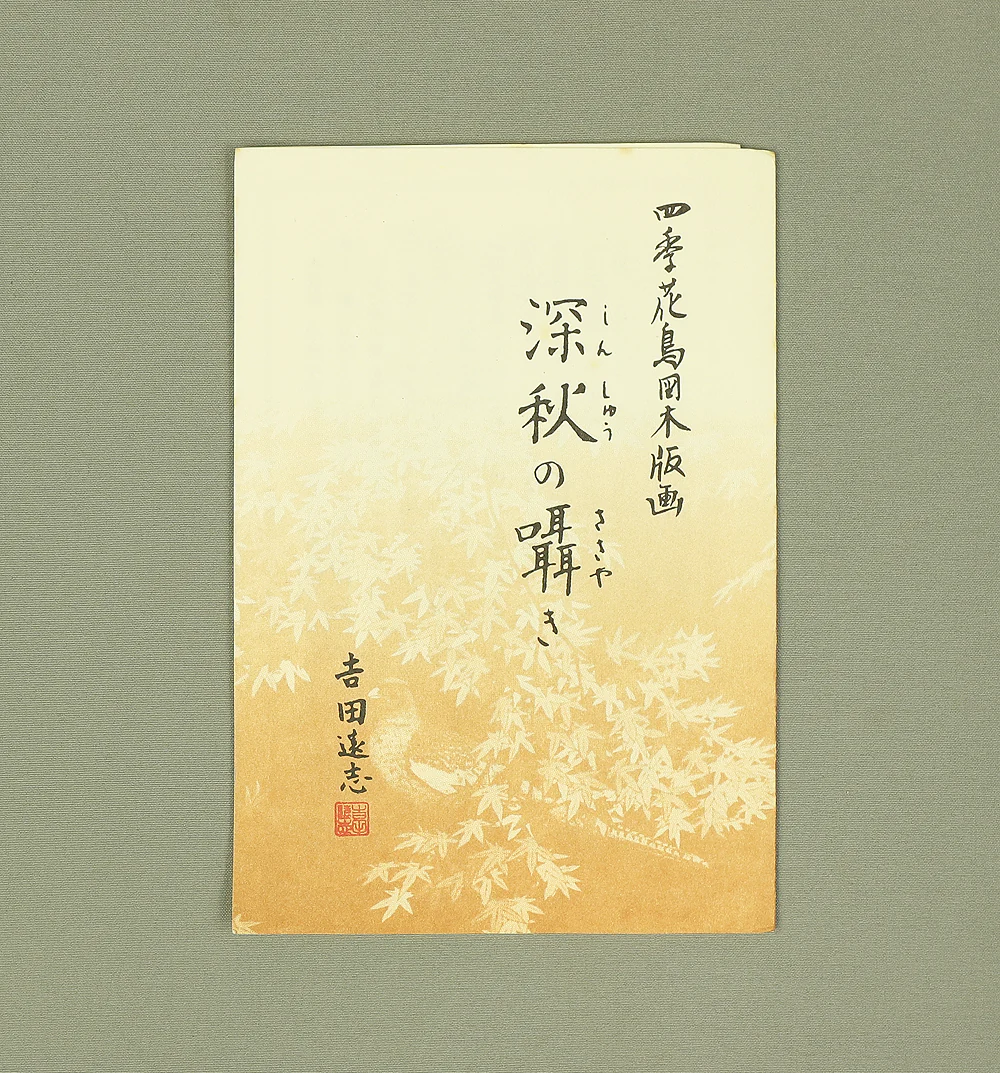 四季花鳥図木版画
しんしゅう ささや
深秋の囁き
吉田遠志